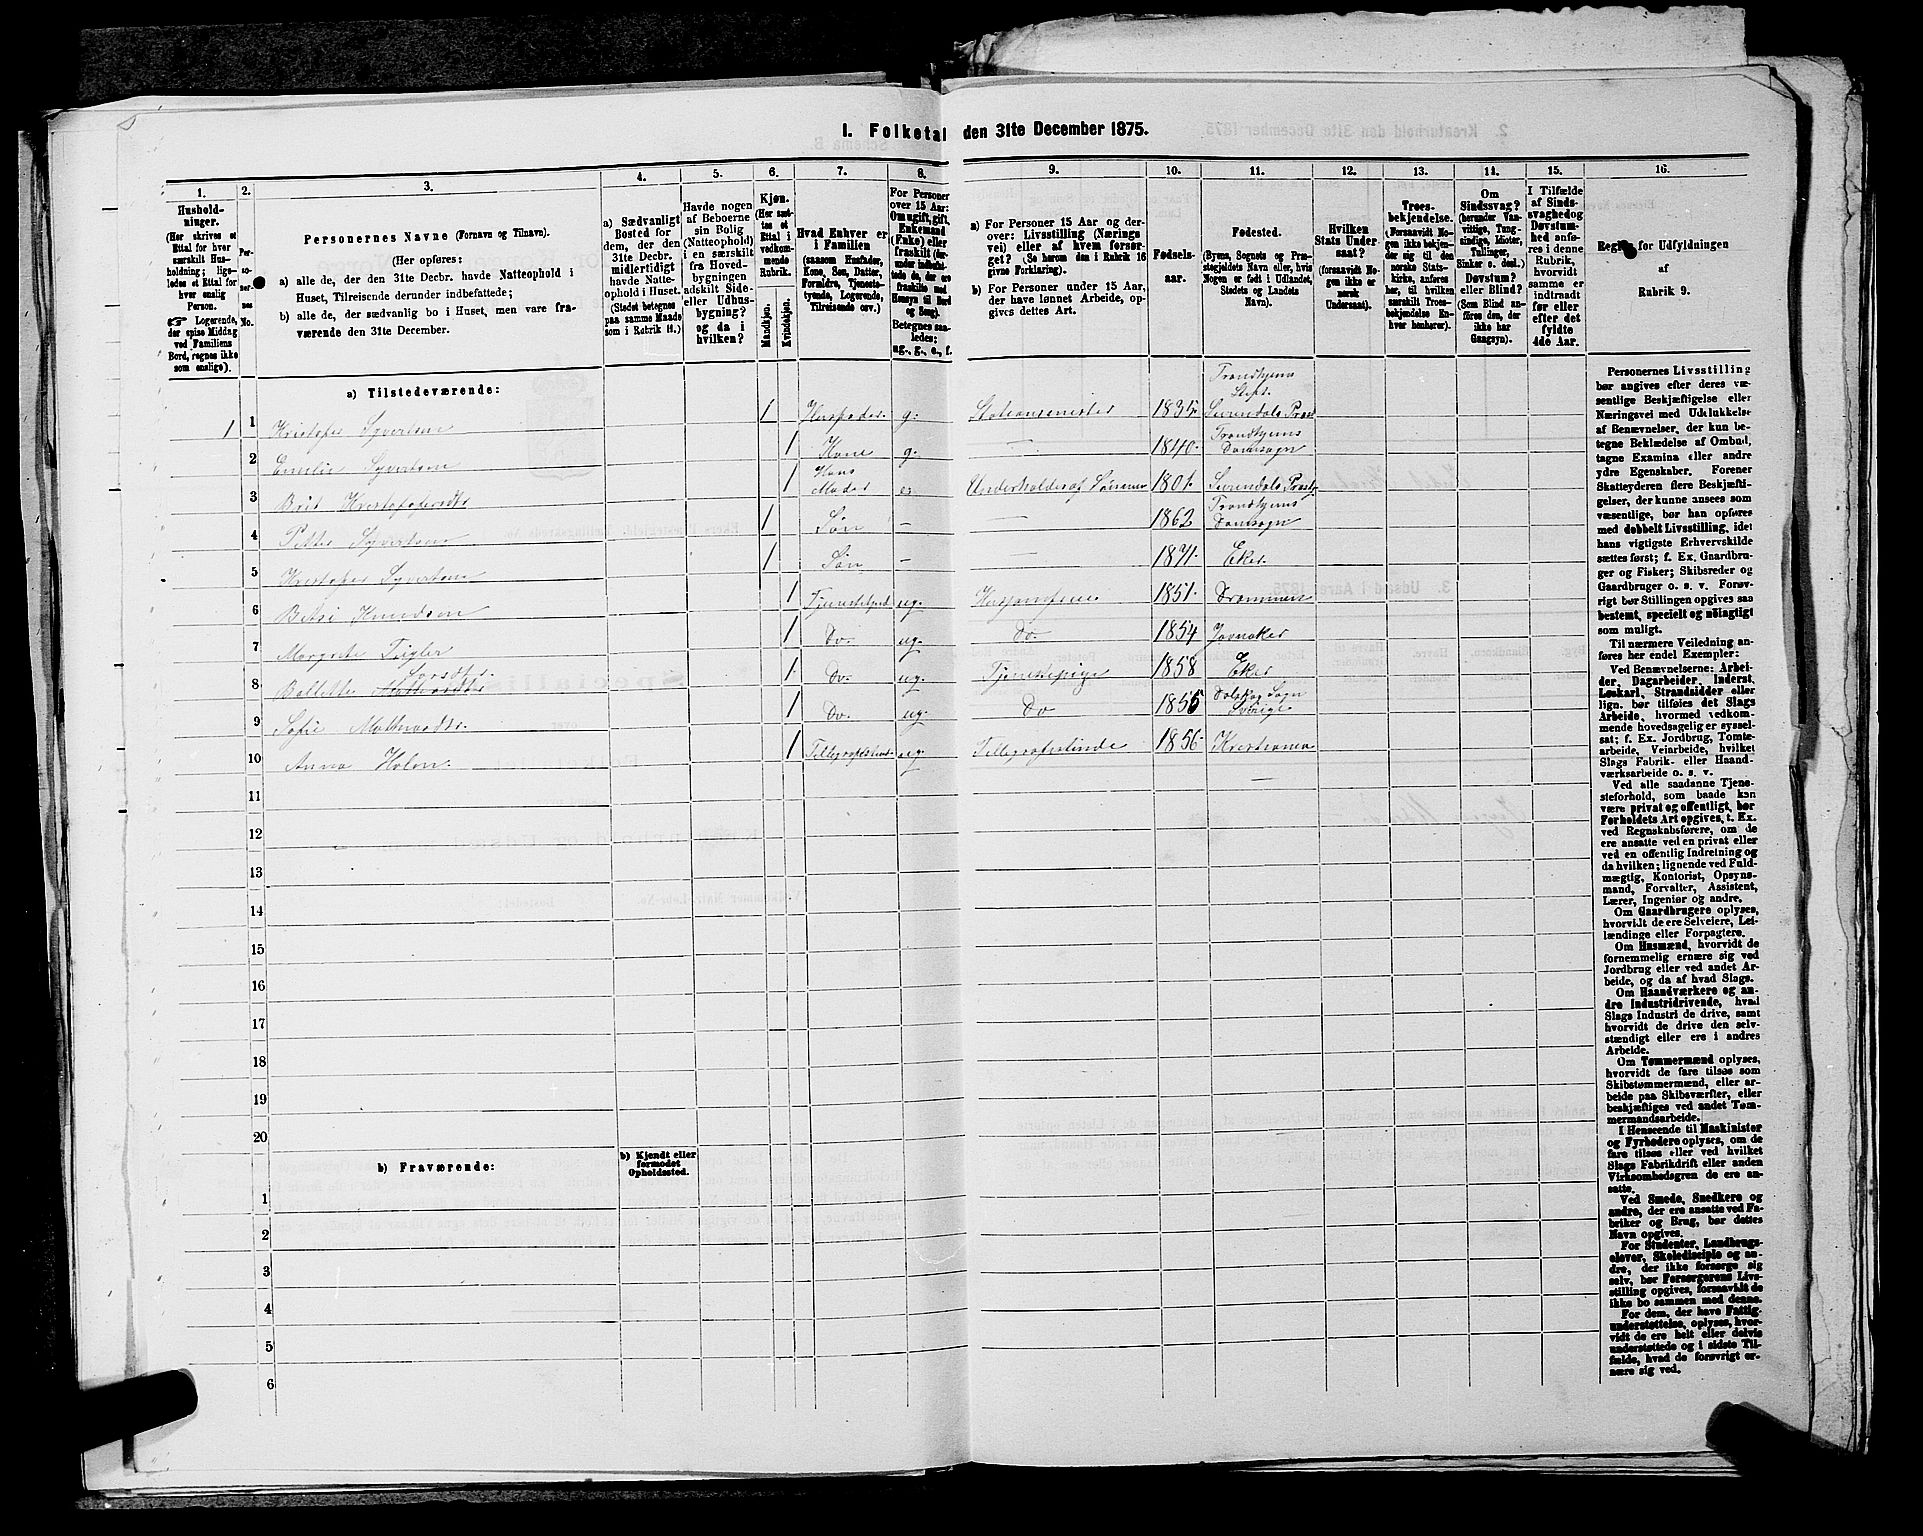 I. Folketal den 31te December 1875.
1.
2.
3.
4.
5.
6.
7.
8.
9.
10.
11.
12.
13.
14.
15.
16.
Hushold-
ninger.
(Her skrives et
Ettal for hver
særskilt Hus-
holdning; lige-
ledes et Ettal for
hver enslig
Person.
☞ Logerende,
der spise Middag
ved Familiens
Bord, regnes ikke
som enslige).
Per-
so-
ner-
nes
No.
Personernes Navne (Fornavn og Tilnavn).
(Her opføres:
a) alle de, der den 31te Decbr. havde Natteophold i
Huset, Tilreisende derunder indbefattede;
b) alle de, der sædvanlig bo i Huset, men vare fra-
værende den 31te December.
a) Sædvanligt
Bosted for
dem, der den
31te Decbr.
midlertidigt
havde Natte-
ophold i Huset.
(Stedet betegnes
paa samme Maade
som i Rubrik 11.)
Havde nogen
af Beboerne
sin Bolig
(Natteophold)
i en særskilt
fra Hoved-
bygningen
adskilt Side-
eller Udhus-
bygning?
og da i
hvilken?
Kjøn.
(Her sæt-
tes et
Ettal i
vedkom-
mende
Rubrik.
Mandkjøn.
Kvindekjøn.
Hvad Enhver er
i Familien
(saasom Husfader,
Kone, Søn, Datter,
Forældre, Tjeneste-
tyende, Logerende,
Tilreisende osv.)
For Personer
over 15 Aar:
Om ugift, gift,
Enkemand
(Enke) eller
fraskilt
Betegnes saa-
ledes:
ug., g., e., f.
a) For Personer 15 Aar og der-
over: Livsstilling (Nærings
vei) eller af hvem forsør-
get? (Se herom den i Rubrik 16
givne Forklaring).
b) For Personer under 15 Aar,
der have lønnet Arbeide, op-
gives dettes Art.
Fødsels-
aar.
Fødested.
(Byens, Sognets og Præ-
stegjeldets Navn eller, hvis
Nogen er født i Udlandet,
Stedets og Landets
Navn).
Hvilken
Stats Under-
saat?
(forsaavidt No-
gen ikke er
norsk
Undersaat).
Troes-
bekjendelse.
(Forsaavidt No-
gen ikke bekjen-
der sig til den
norske Stats-
kirke, anføres
her, til hvilken
særskilt Troes-
bekjendelse En-
hver henhører).
Om
Sindssvag?
(herunder Van-
vittige, Tung-
sindige, Idioter,
Tullinger,
Sinker o. desl.)
eller Blind?
Døvstum?
(Som Blind an-
føres den, der
ikke har
Gangsyn).
I Tilfælde
af Sinds-
svaghed og
Døvstum-
hed anfø-
res i denne
Rubrik,
hvorvidt
samme er
indtraadt
før eller
efter det
fyldte
4de Aar.
Regler for Udfyldningen
af
Rubrik 9.
a) Tilstedeværende:
1 1 Kristofer Syvertsen 1 Husfader g. Stationsmester 1835 Trondhjems Stift. Surendals Præst
2 Emilie Syvertsen 1 Kone g. — 1840 Trondhjems Domsogn
3 Brit Kristofersdtr 1 Hans Moder e. Underholdes af Sønnen 1801 Surendals Præstg
4 Petter Syvertsen 1 Søn — — 1862 Trondhjems Domsogn
5 Kristofer Syvertsen 1 Søn — 1871 Eker
6 Betsi Knudsen 1 ug. 1851 Drammen
7 Margrete 1 Do. ug. Do. 1854 Jevnaker
8 1 Do. ug. Tjenestepige 1858 Eker
9 Sofie 1 Do. ug. Do 1855 Sogn Sverige
10 Anna Holm. 1 ug. Telegrafistinde 1856 Kristiania
11
12
13
14
15
16
17
18
19
20
b) Fraværende:
b) Kjendt eller
formodet
Opholdssted.
1
2
3
4
5
6
Personernes Livsstilling
bør angives efter deres væ-
sentlige Beskjæftigelse eller
Næringsvei med Udelukkelse
af Benævnelser, der kun be-
tegne Beklædelse af Ombud,
tagne Examina eller andre
ydre Egenskaber. Forener
Skatteyderen flere Beskjæfti-
gelser, der kunne ansees som
væsentlige, bør han opføres
med dobbelt Livsstilling, idet
hans vigtigste Erhvervskilde
sættes først; f. Ex. Gaardbru-
ger og Fisker; Skibsreder og
Gaardbruger o. s. v. Forøv-
rigt bør Stillingen opgives saa
bestemt, specielt og nøiagtigt
som muligt.
Til nærmere Veiledning an-
føres her endel Exempler:
Ved Benævnelserne: Arbei-
der, Dagarbeider, Inderst,
Løskarl, Strandsidder eller
lign. bør tilføies det Slags
Arbeide, hvormed vedkom-
mende hovedsagelig er syssel-
sat; f. Ex. Jordbrug, Tomte-
arbeide, Veiarbeide, hvilket
Slags Fabrik- eller Haand-
værksarbeide o. s. v.
Ved alle saadanne Tjene-
steforhold, som baade kan
være privat og offentligt, bør
Forholdets Art opgives, t. Ex.
ved Regnskabsførere, om de
ere ansatte ved en privat eller
ved en offentlig Indretning og
da hvilken; lignende ved Fuld-
mægtig, Kontorist, Opsyns-
mand, Forvalter, Assistent,
Lærer, Ingeniør og andre.
Om Gaardbrugere oplyses,
hvorvidt de ere Selveiere, Lei-
lændinge eller Forpagtere.
Om Husmænd, hvorvidt de
fornemmelig ernære sig ved
Jordbrug eller ved andet Ar-
beide, og da af hvad Slags.
Om Haandværkere og an-
dre Industridrivende, hvad
Slags Industri de drive, samt
hvorvidt de drive den selv-
stændigt eller ere i andres
Arbeide.
Om Tømmermænd oplyses,
hvorvidt de fare tilsøs som
Skibstømmermænd, eller ar-
beide paa Skibsværfter, eller
beskjæftiges ved andet Tøm-
mermandsarbeide.
I Henseende til Maskinister
og Fyrbødere oplyses, om de
fare tilsøs eller ved hvilket
Slags Fabrikdrift eller anden
Virksomhedsgren de ere an-
satte.
Ved Smede, Snedkere og
andre, der ere ansatte ved Fa-
briker og Brug, bør dettes
Navn opgives.
For Studenter, Landbrugs-
elever, Skoledisciple og an-
dre, der ikke forsørge sig
selv, bør Forsørgerens Livs-
stilling opgives, forsaavidt de
ikke bo sammen med denne.
For dem, der have Fattig-
understøttelse, oplyses, hvor-
vidt de ere helt eller delvis
understøttede og i sidste Til-
fælde, hvad de forøvrigt er-
nære sig ved.